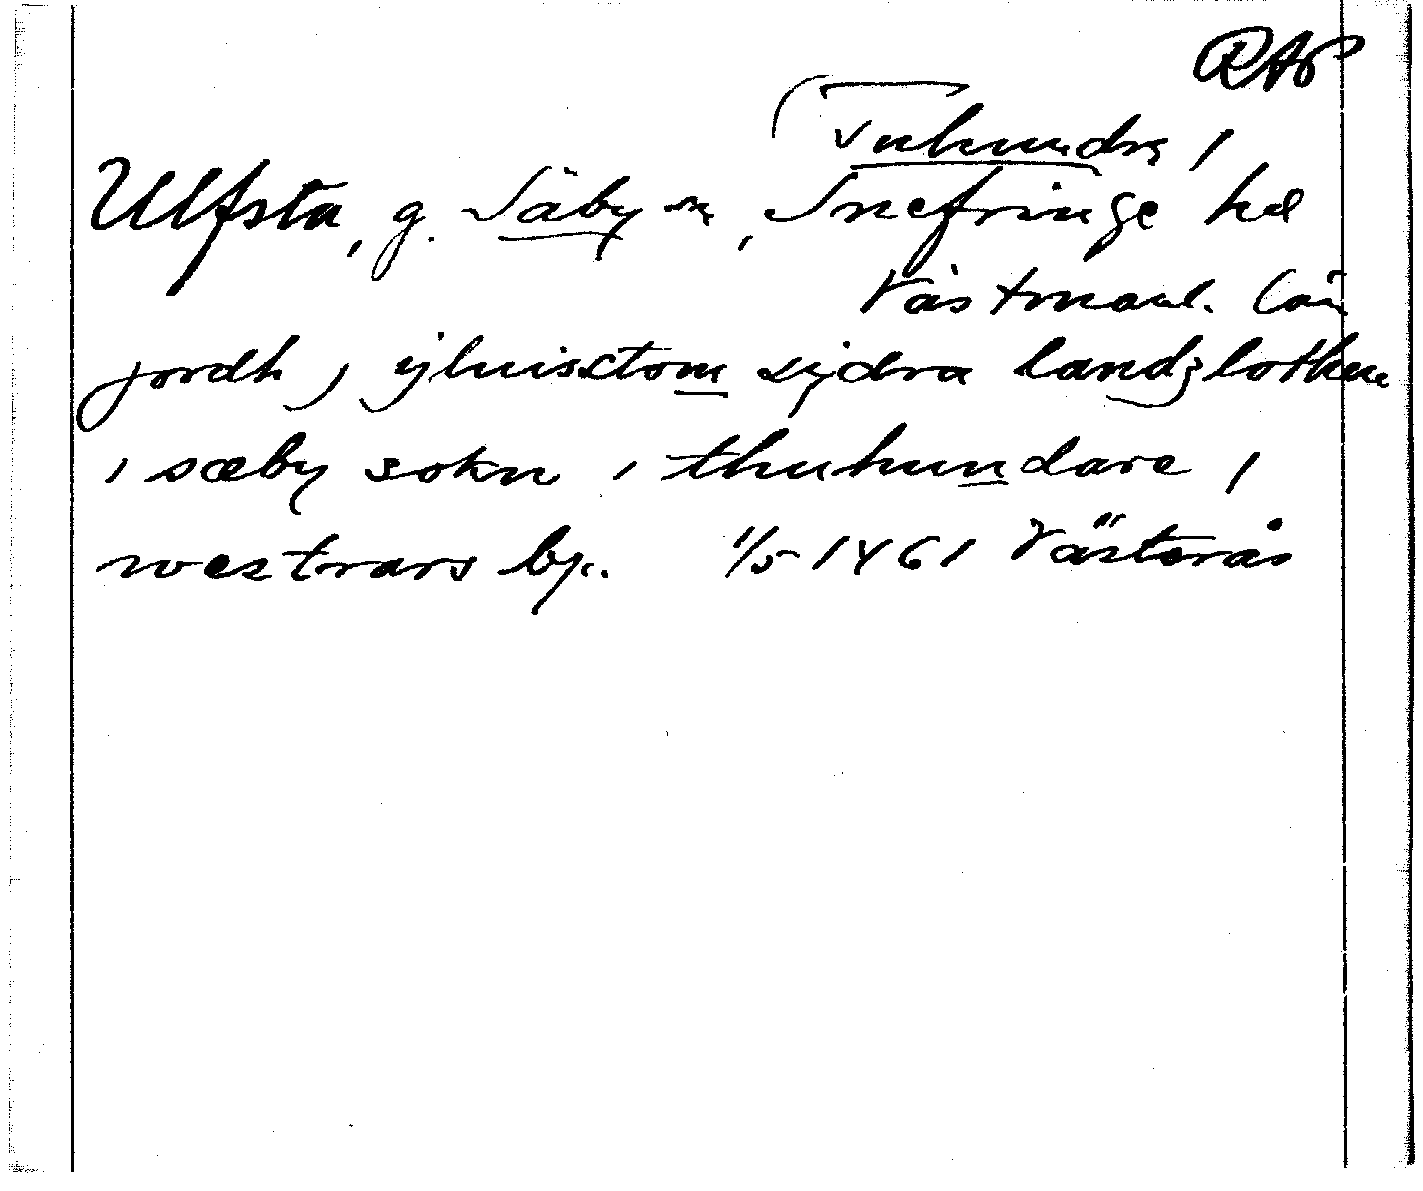 RAP
(Tuhundra)
Ulfsta, g. Säby sn, Snefringe hd
Västmanl. län
jordh j yluisstom sydra landzlothen
i sæby sokn i thuhundare j
westrars by.. 1/5 1461 Västerås